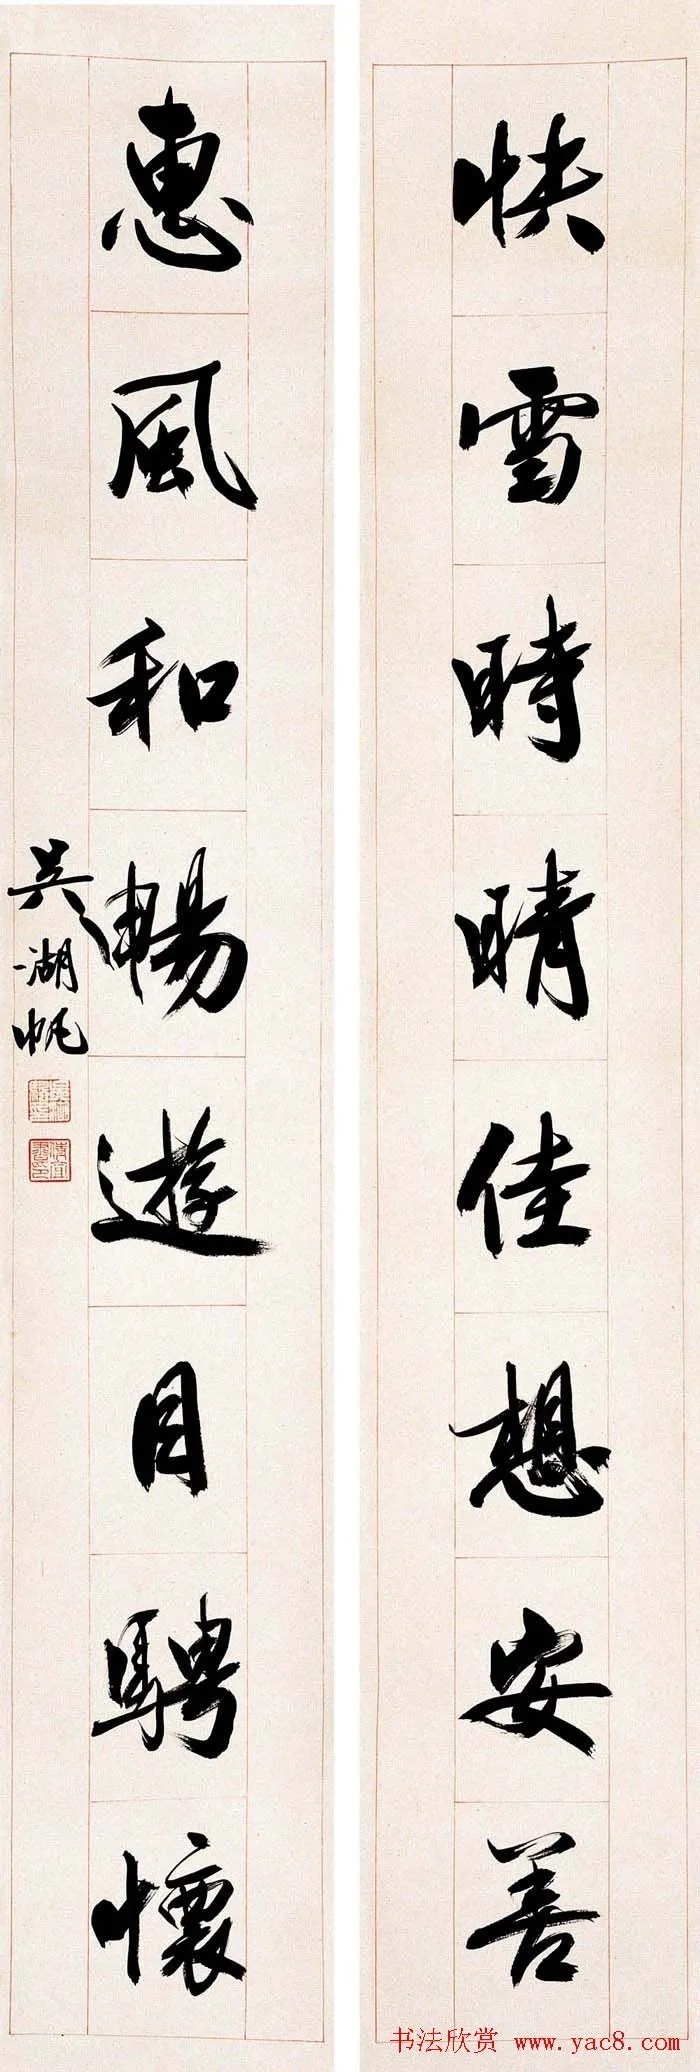 快雪時晴佳想安善
惠風和暢遊目騁懷
吳湖帆
书法欣赏 www.yac8.com